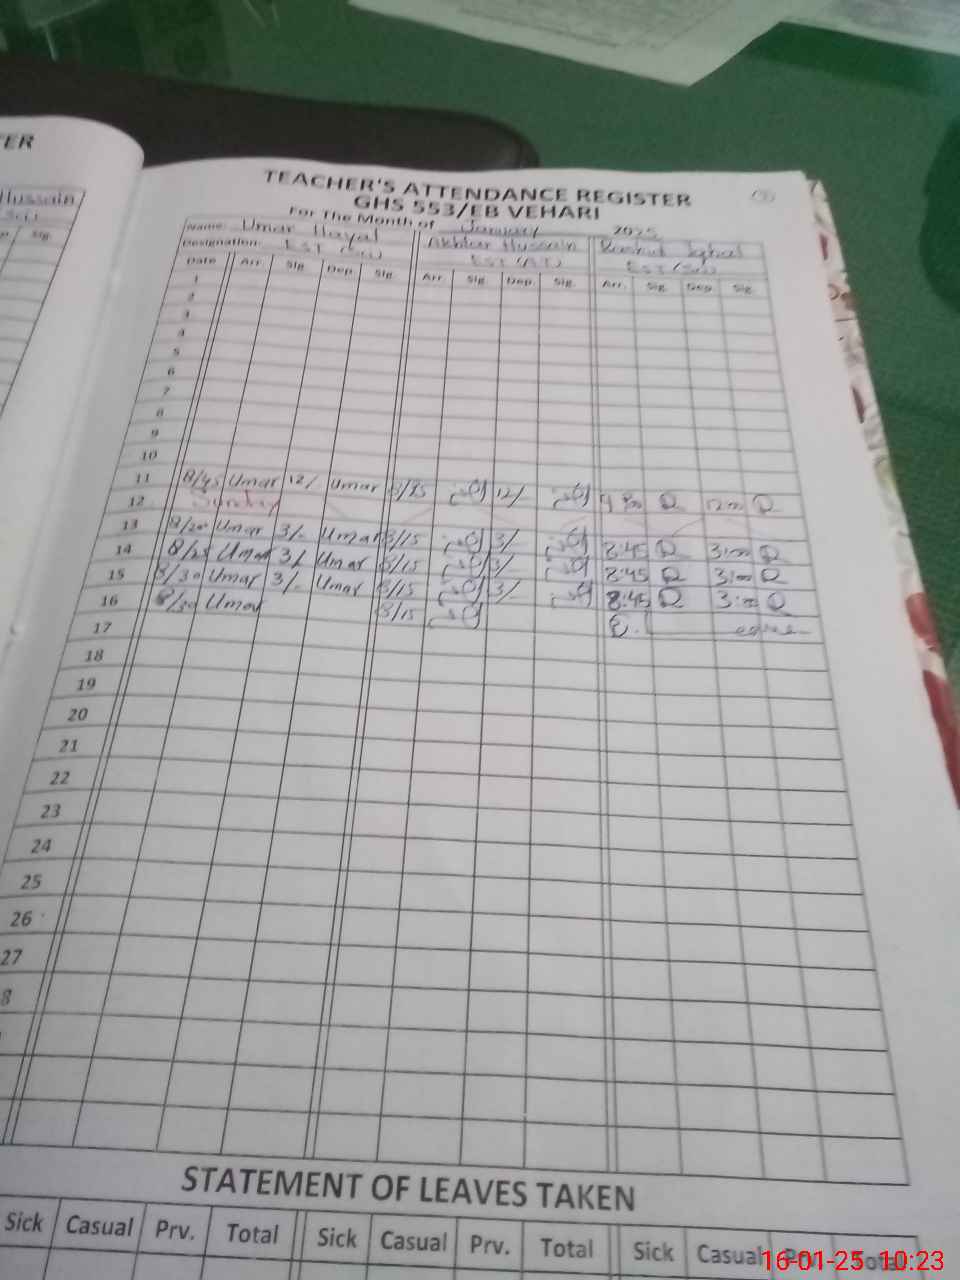 TER
Hussain
Sig.
TEACHER'S ATTENDANCE REGISTER
GHS 553/EB VEHARI
For The Month of January 2025
Name: Umar Hayal Akhtar Hussain Rashid Iqbal
Designation: EST (Sci) EST (AT) EST (Sci)
Date Arr. Sig. Dep. Sig. Arr. Sig. Dep. Sig. Arr. Sig. Dep. Sig.
1
2
3
4
5
6
7
8
9
10
11 8/45 Umar 12/ Umar 12/
12 Sunday
13 8/20 Umar 3/- Umar 8/15 3/- 8:45 3:00
14 8/25 Umar 3/- Umar 8/15 3/- 8:45 3:00
15 8/30 Umar 3/- Umar 8/15 3/- 8:45 3:00
16 8/30 Umar 8/15
17
18
19
20
21
22
23
24
25
26
27
8
STATEMENT OF LEAVES TAKEN
Sick Casual Prv. Total Sick Casual Prv. Total Sick Casual Prv. Total
16-01-25 10:23